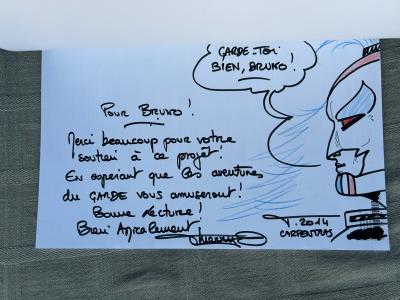 GARDE-TOI
BIEN, BRUNO !
POUR BRUNO !
Merci beaucoup pour votre
soutien à ce projet !
En espérant que les aventures
du GARDE vous amuseront !
Bonne lecture !
Bien Amicalement
T. 2014
CARPENTRAS